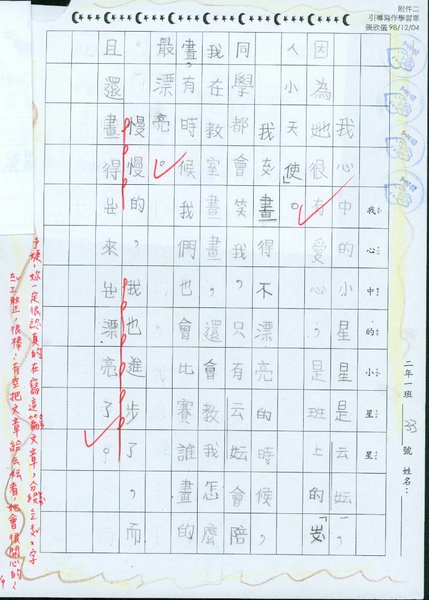 附件二
引導寫作學習單
張欣儀 98/12/04
我心中的小星星 二年一班 33 號 姓名：
我心中的小星星是云妘，
因為她很有愛心，是班上的「
人小天使」。
我畫得不漂亮的時候，
同學都會笑我，只有云妘會陪
我在教室畫畫，還會教我怎麼
畫，有時候我們也會比賽誰畫的
最漂亮。
慢慢的，我也進步了，而
且還畫得出來出漂亮了。
妳一定很認真的在寫這篇文章，分段
工整，很棒！有空把文章給云妘看，她會很開心的！